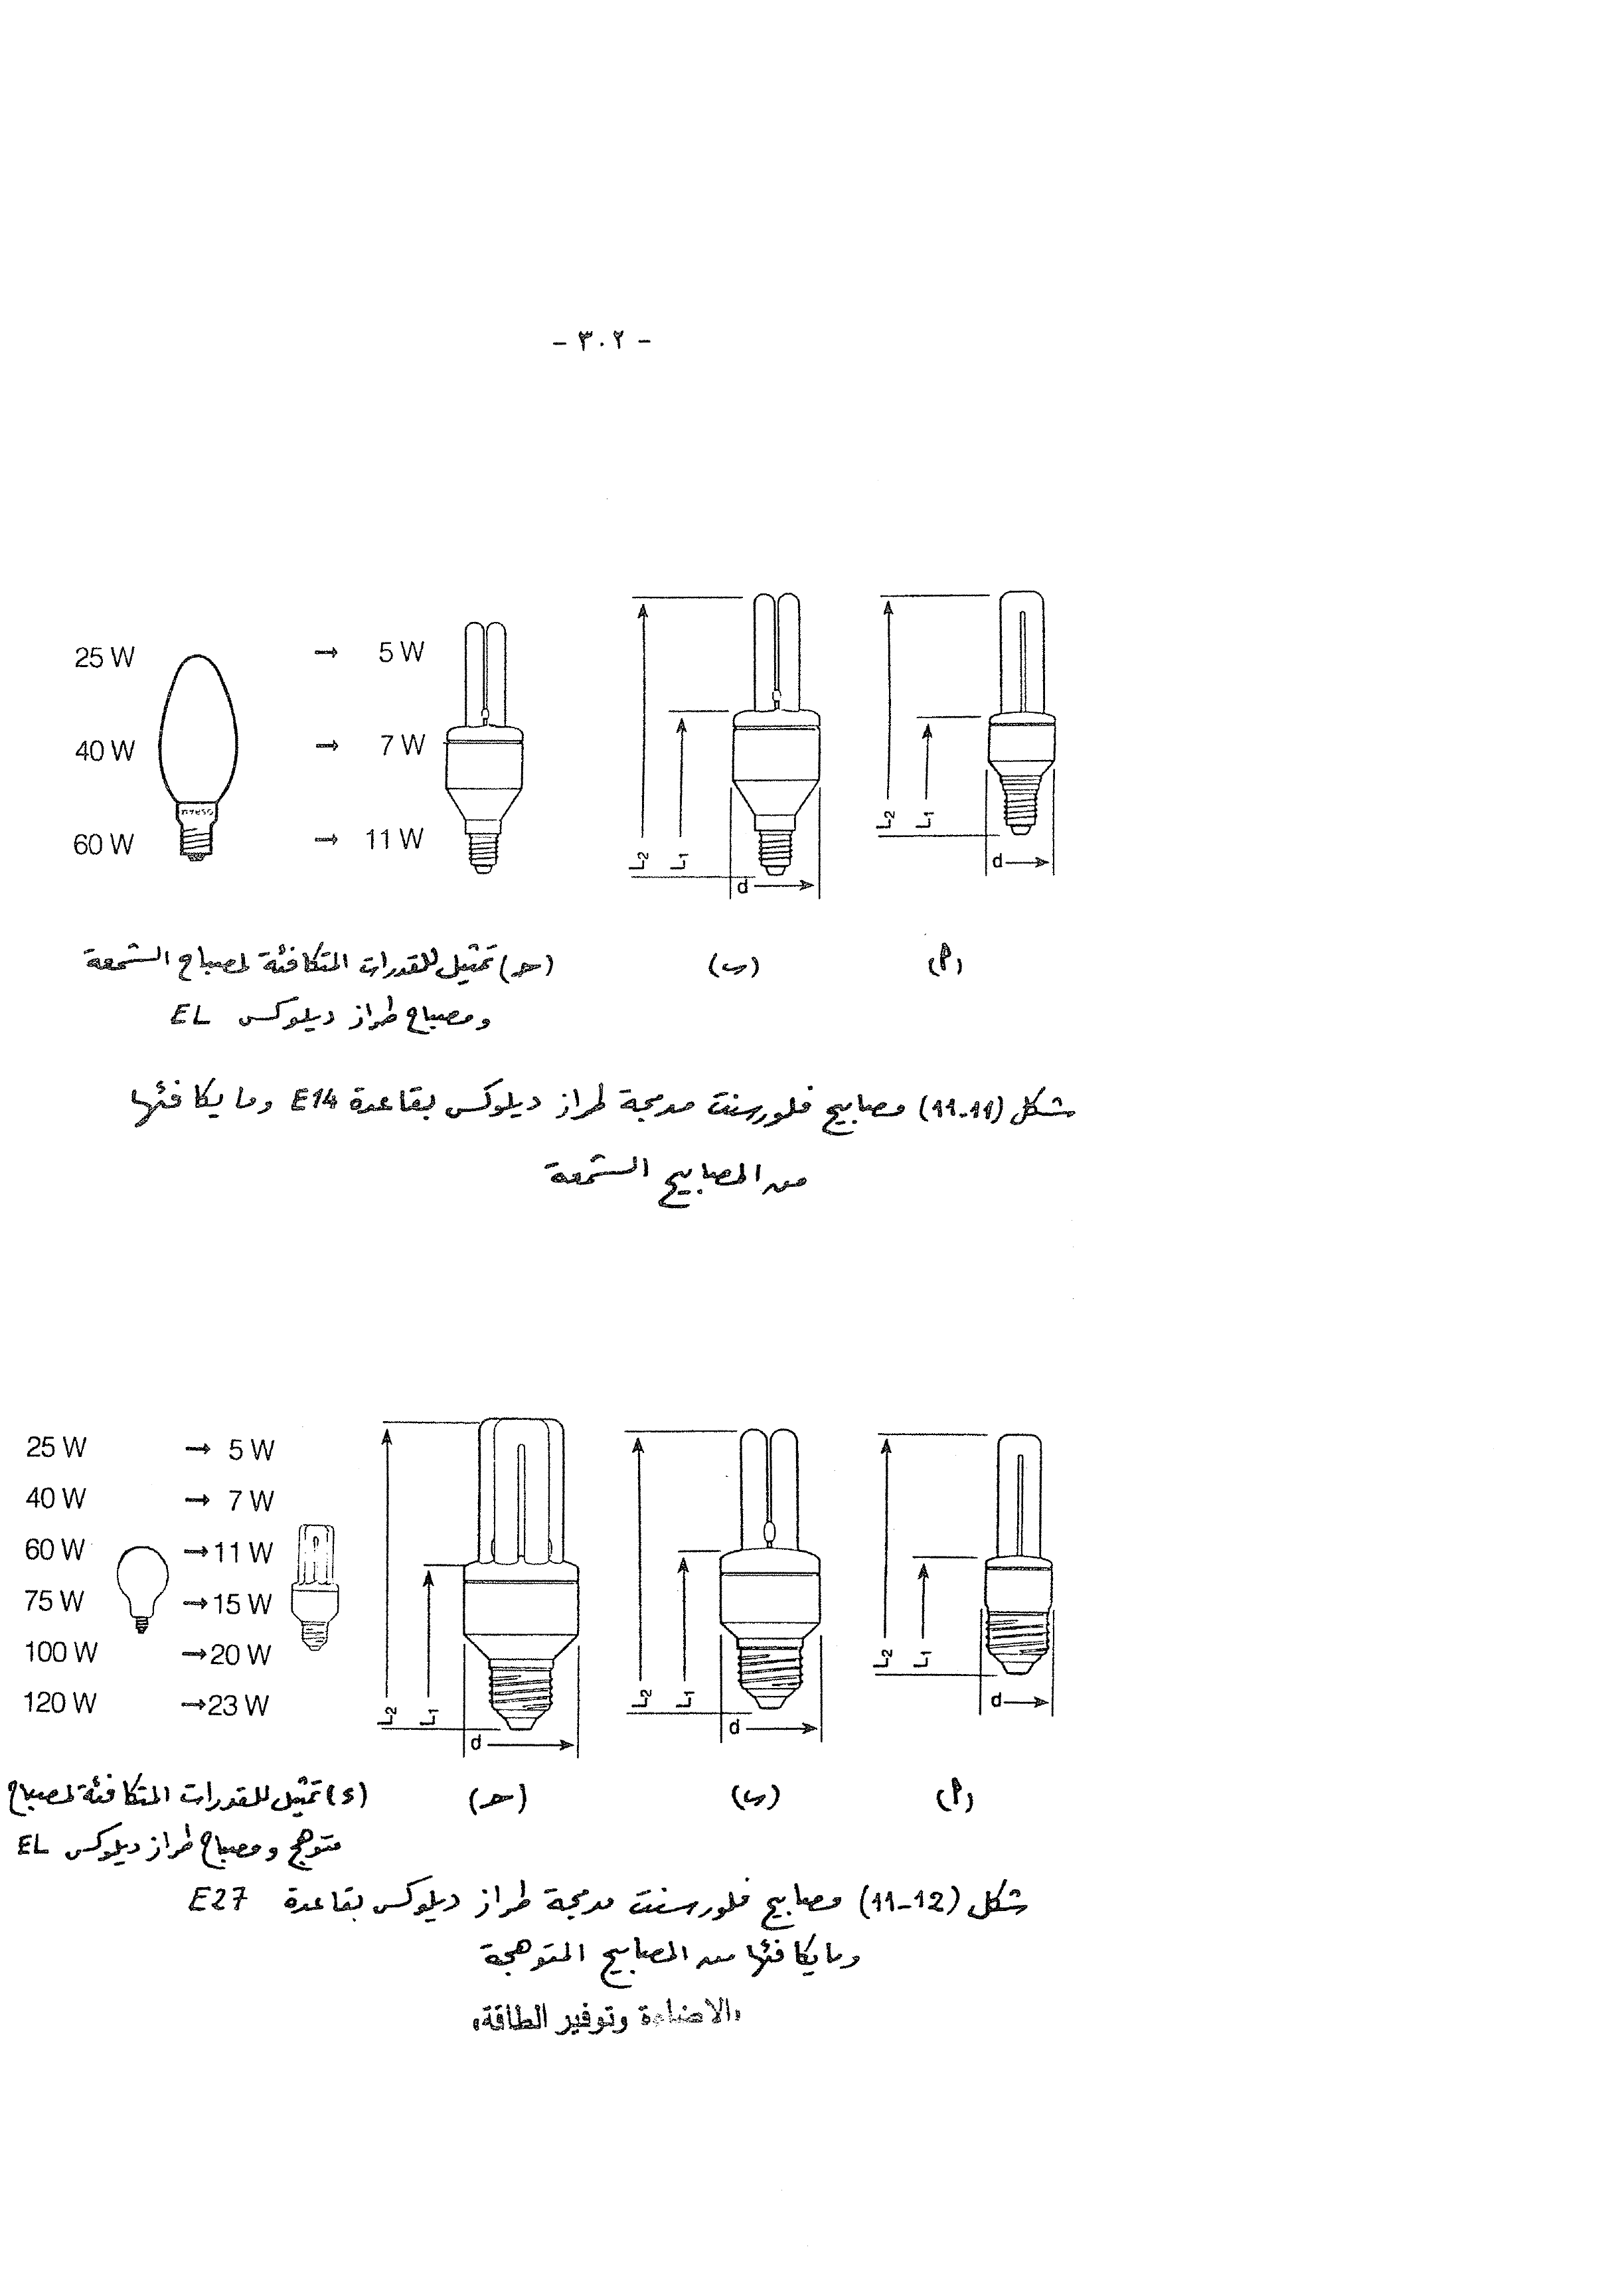 - ٣٠٢ -
25 W → 5 W
40 W → 7 W
60 W → 11 W
OSRAM
L2 L1 d
L2 L1 d
(أ)
(ب)
(حـ) تمثيل للقدرات المتكافئة لمصباح الشمعة
ومصباح طراز ديلوكس EL
شكل (11-11) مصابيح فلورسنت مدمجة طراز ديلوكس بقاعدة E14 وما يكافئها
من المصابيح الشمعة
25 W → 5 W
40 W → 7 W
60 W → 11 W
75 W → 15 W
100 W → 20 W
120 W → 23 W
L2 L1 d
L2 L1 d
L2 L1 d
(أ)
(ب)
(حـ)
(د) تمثيل للقدرات المتكافئة لمصباح
متوهج ومصباح طراز ديلوكس EL
شكل (12-11) مصابيح فلورسنت مدمجة طراز ديلوكس بقاعدة E27
وما يكافئها من المصابيح المتوهجة
«الاضاءة وتوفير الطاقة»